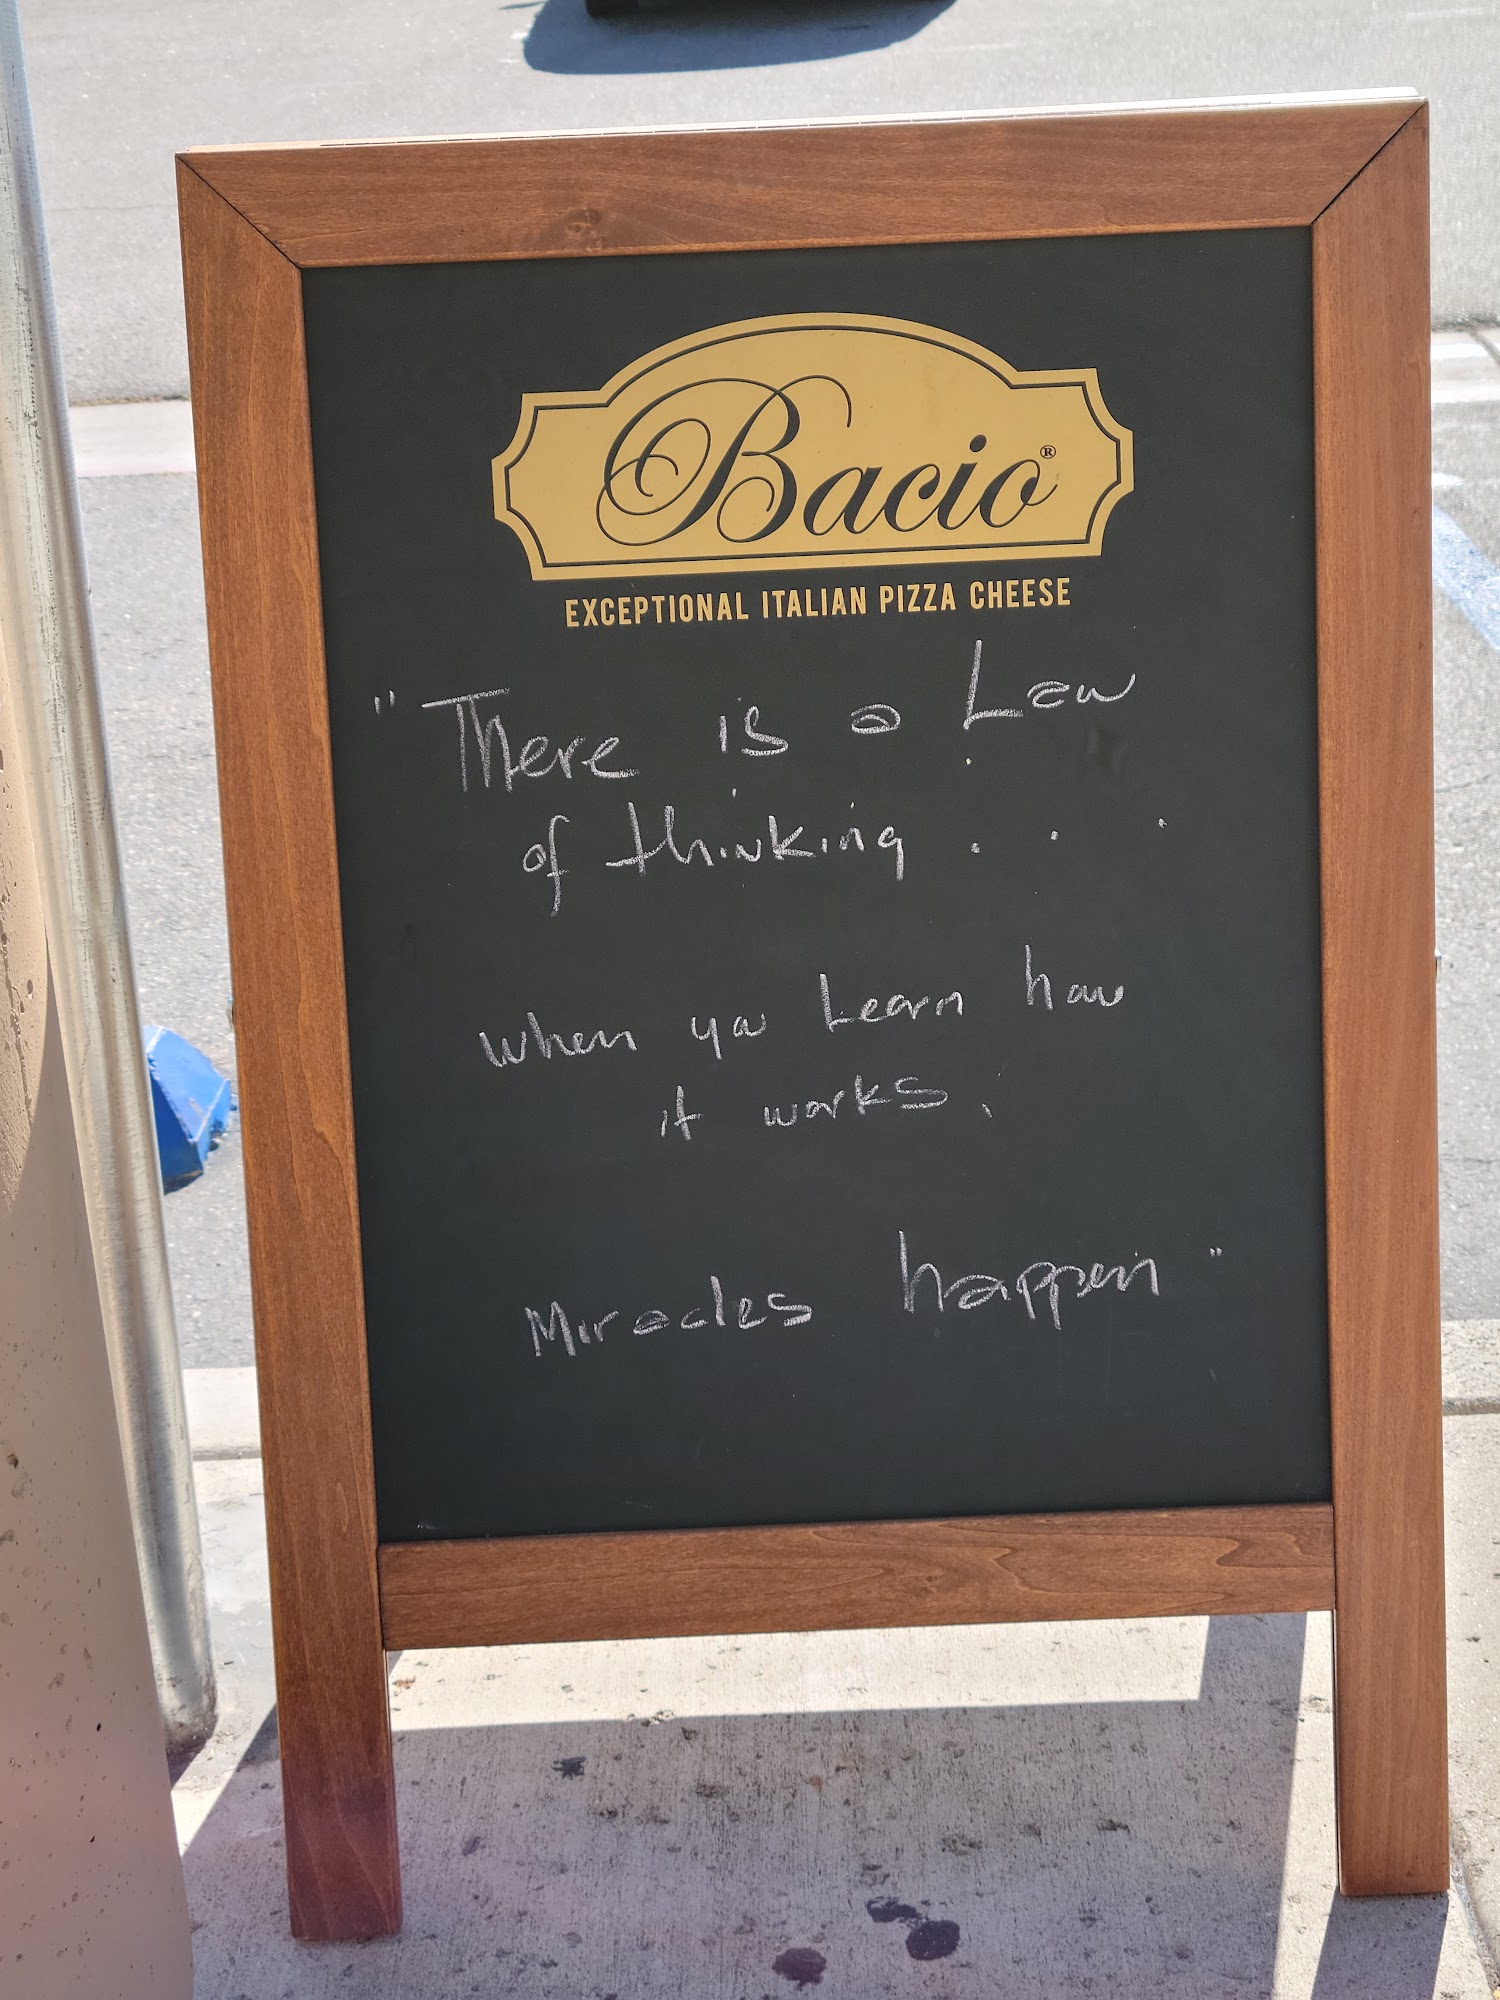 Bacio®
EXCEPTIONAL ITALIAN PIZZA CHEESE
"There is a Law
of thinking...
when you Learn how
it works.
Miracles happen"